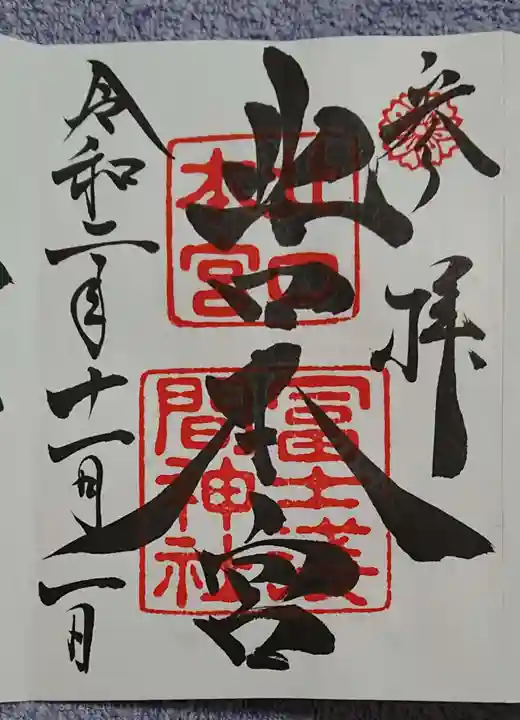 参拝
北口本宮
北口
本宮
冨士浅
間神社
令和二年十一月一日